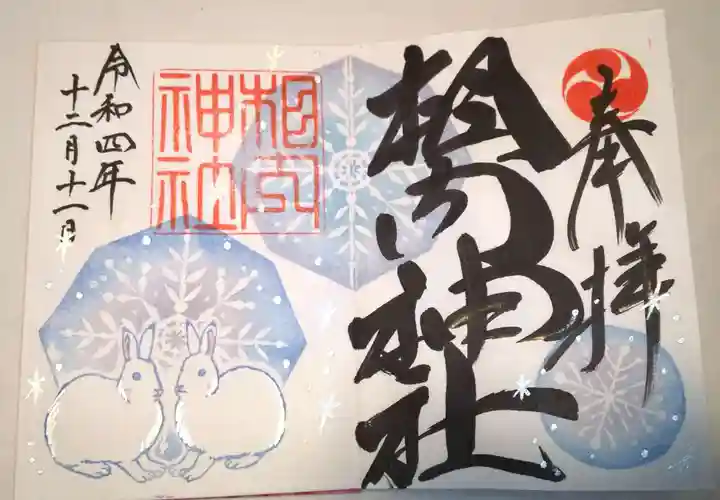 奉拝
相内神社
相内神社
令和四年
十二月十一日